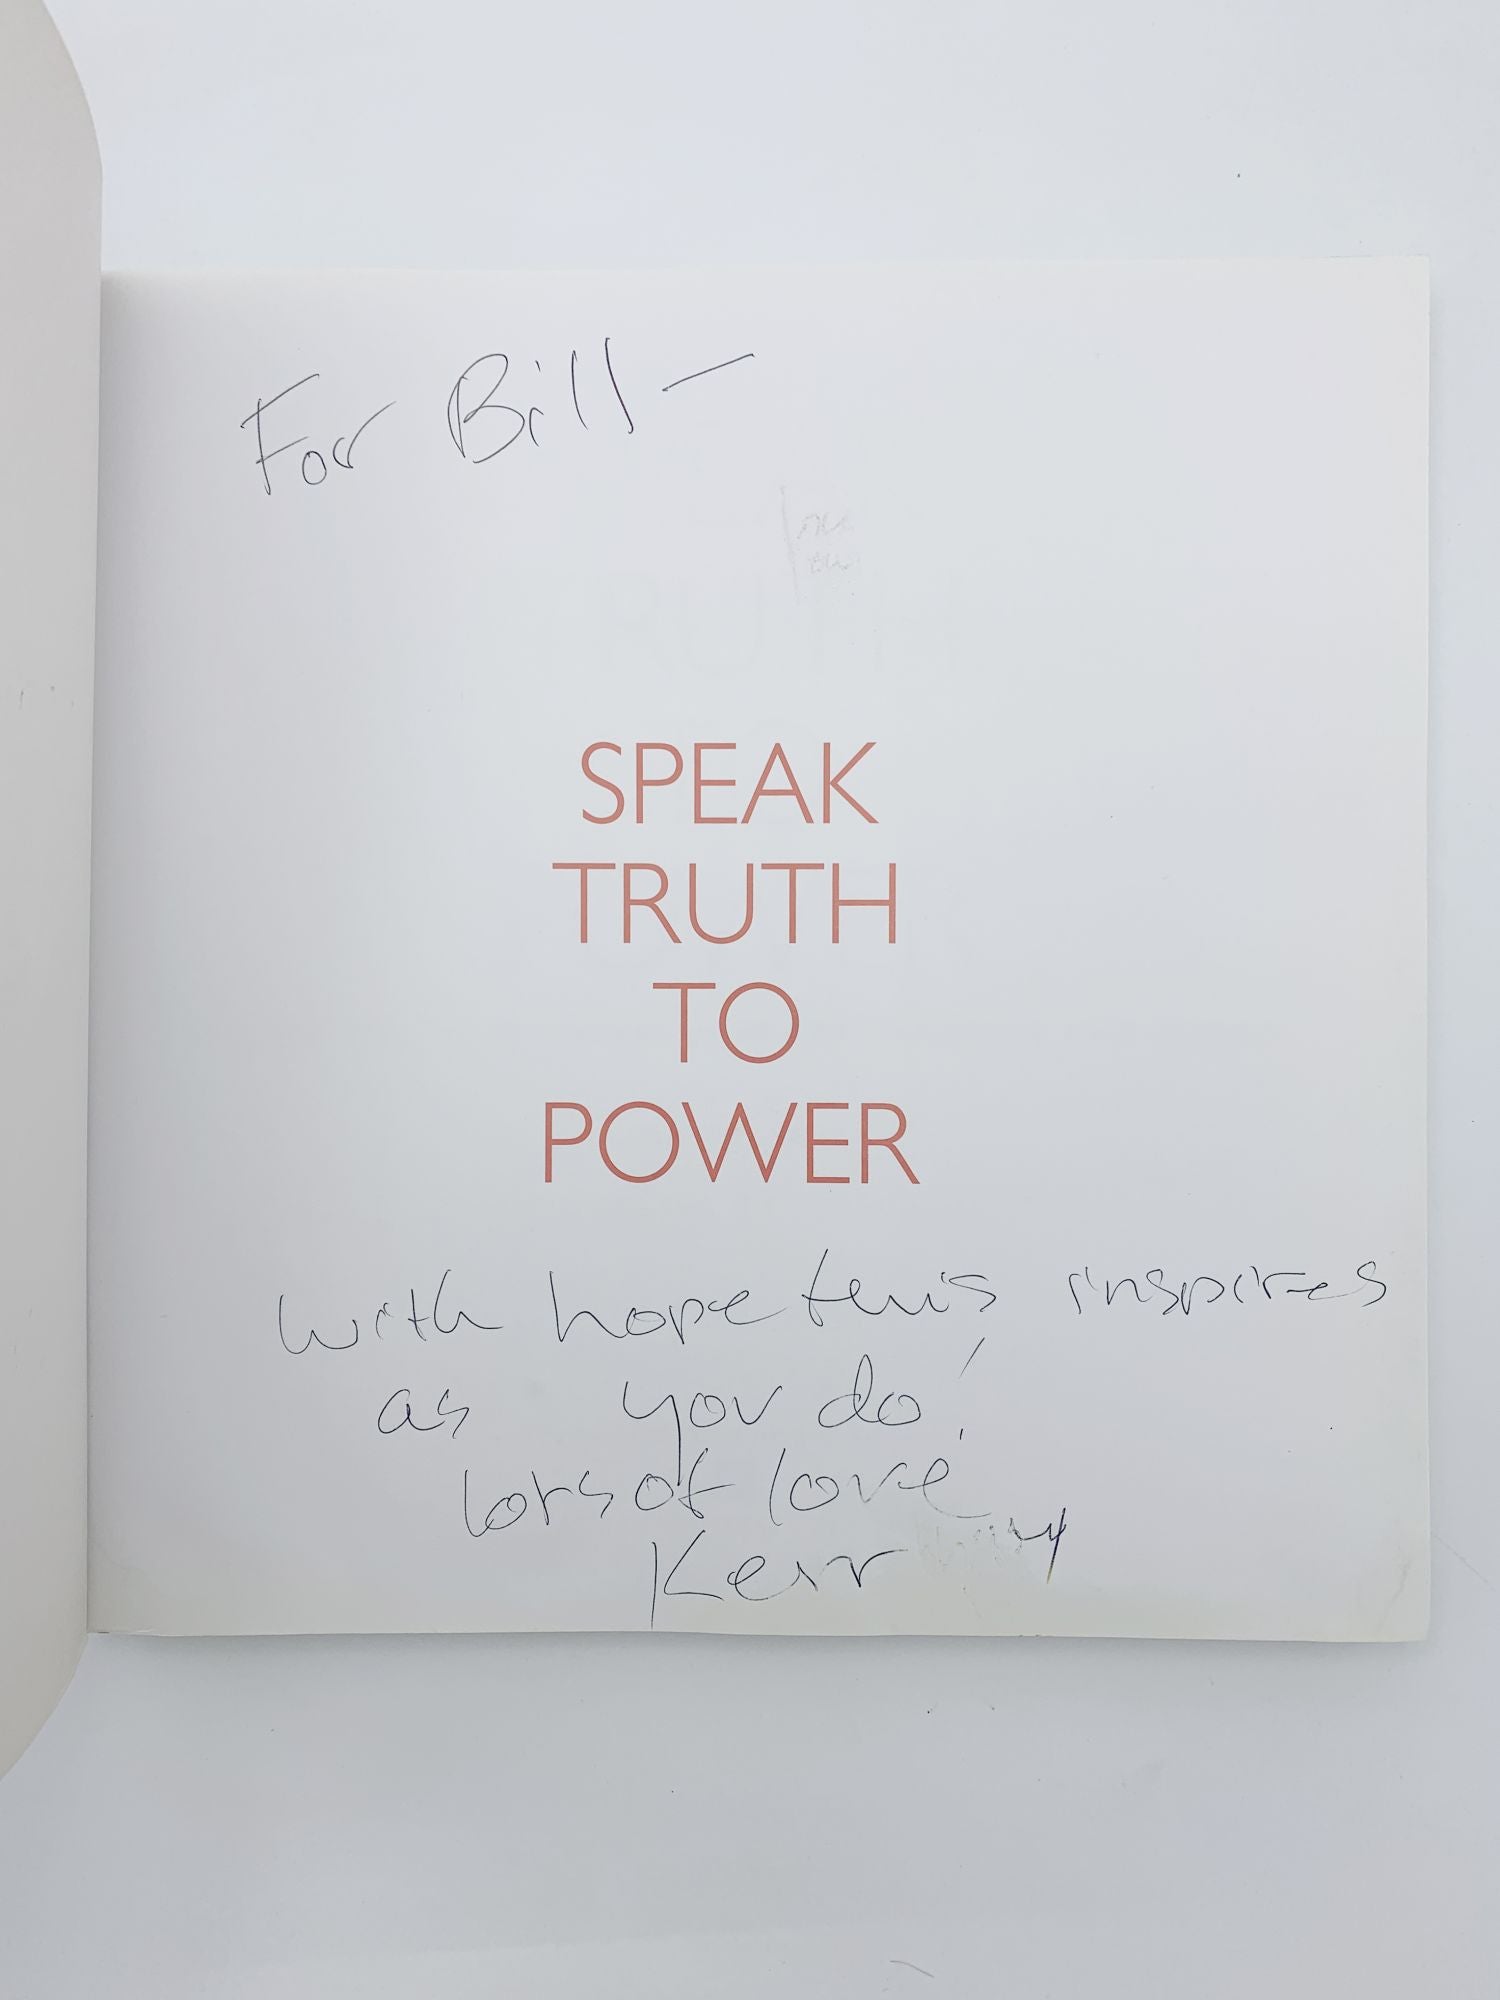 For Bill —
SPEAK
TRUTH
TO
POWER
with hope this inspires
as you do!
lots of love,
Kerry